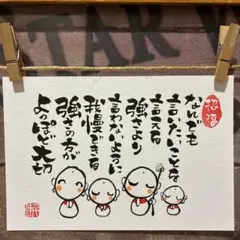 なんでも
言いたいことを
言える
強さより
言わないように
我慢できる
強さの方が
よっぽど大切